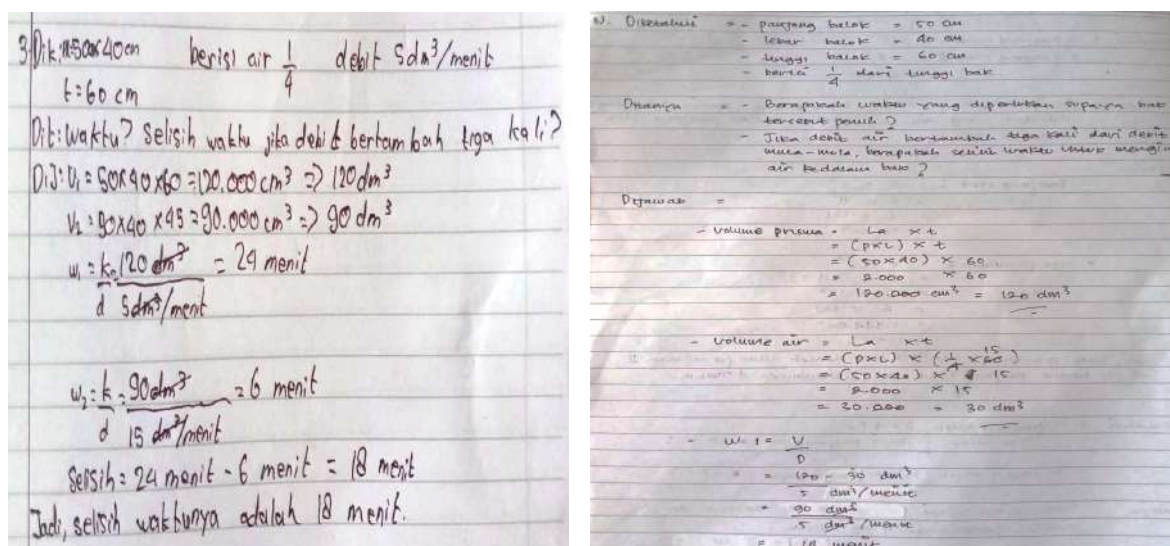 3. Dik: 50x40cm berisi air 1/4 debit 5dm³/menit
t=60 cm
Dit: waktu? Selisih waktu jika debit bertambah tiga kali?
DiJ: V₁ = 50x40x60 = 120.000 cm³ => 120dm³
V₂ = 50x40x45 = 90.000 cm³ => 90 dm³
w₁ = k/d = 120 dm³ / 5dm³/menit = 24 menit
w₂ = k/d = 90dm³ / 15 dm³/menit = 6 menit
Selsih = 24 menit - 6 menit = 18 menit
Jadi, selisih waktunya adalah 18 menit.
Diketahui = - panjang balok = 50 cm
- lebar balok = 40 cm
- tinggi balok = 60 cm
- berisi 1/4 dari tinggi bak
Ditanya = - Berapakah waktu yang diperlukan supaya bak
tersebut penuh ?
- Jika debit air bertambah tiga kali dari debit
mula-mula, berapakah selisih waktu untuk mengisi
air kedalam bak ?
Dijawab =
- Volume prisma = La x t
= (pxl) x t
= (50x40) x 60
= 2.000 x 60
= 120.000 cm³ = 120 dm³
- Volume air = La x t
= (pxl) x (1/4 x 60) 15
= (50x40) x 15
= 2.000 x 15
= 30.000 = 30 dm³
- W.1 = V/D
= 120 - 30 dm³ / 5 dm³/menit
= 90 dm³ / 5 dm³/menit
= 18 menit